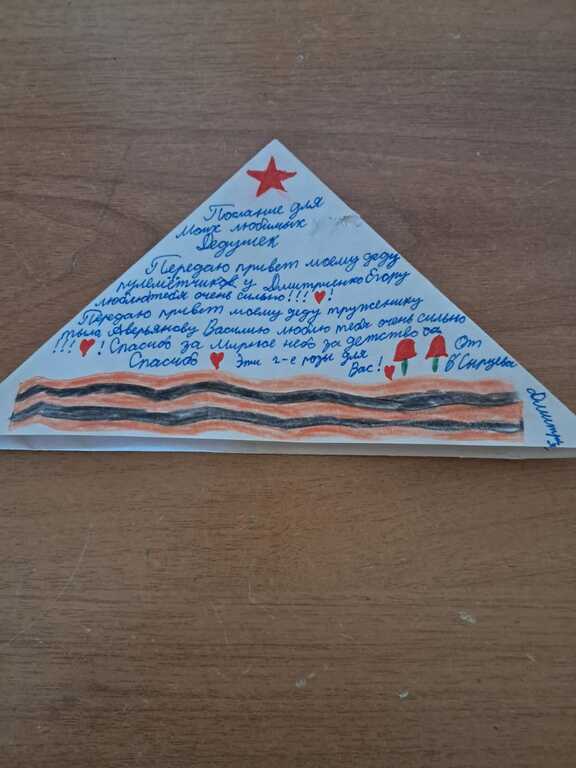 Послание для
Моих любимых
Дедушек
Передаю привет моему деду
пулемётчиков у Дмитриенко Егору
люблю тебя очень сильно!!! ♥!
Передаю привет моему деду труженику
тыла Аверьянову Василию люблю тебя очень сильно
!!! ♥! Спасибо за Мирное небо за детство
Спасибо ♥ Эти 2-е розы для
Вас! ♥
От
Сырцева
Дмитрия